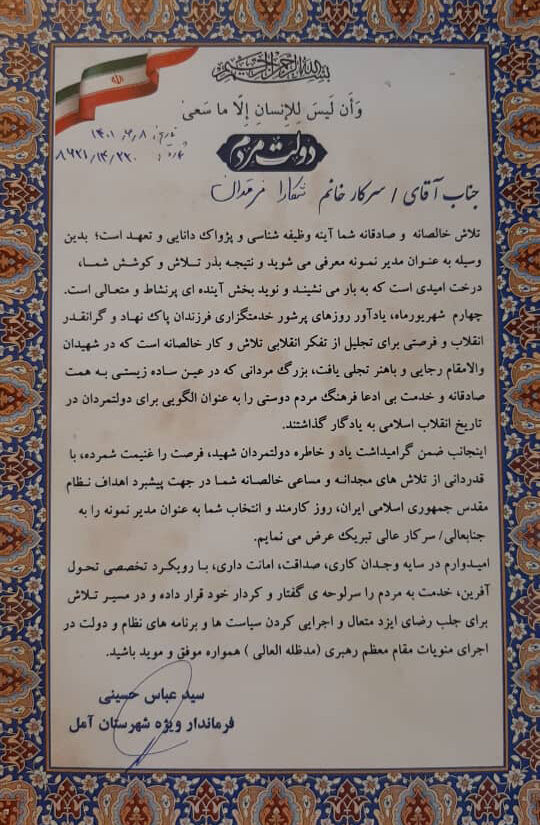 بسم الله الرحمن الرحیم
وَأَن لَيسَ لِلإِنسانِ إِلّا ما سَعىٰ
تاریخ: ۱۴۰۱/۰۶/۰۸
شماره: ۸۶۲۱/۱۴/۲۳۰
دولت مردم
جناب آقای / سرکار خانم
تلاش خالصانه و صادقانه شما آینه وظیفه شناسی و پژواک دانایی و تعهد است؛ بدین
وسیله به عنوان مدیر نمونه معرفی می شوید و نتیجه بذر تلاش و کوشش شما،
درخت امیدی است که به بار می نشیند و نوید بخش آینده ای پرنشاط و متعالی است.
چهارم شهریورماه، یادآور روزهای پرشور خدمتگزاری فرزندان پاک نهاد و گرانقدر
انقلاب و فرصتی برای تجلیل از تفکر انقلابی تلاش و کار خالصانه است که در شهیدان
والامقام رجایی و باهنر تجلی یافت، بزرگ مردانی که در عین ساده زیستی به همت
صادقانه و خدمت بی ادعا فرهنگ مردم دوستی را به عنوان الگویی برای دولتمردان در
تاریخ انقلاب اسلامی به یادگار گذاشتند.
اینجانب ضمن گرامیداشت یاد و خاطره دولتمردان شهید، فرصت را غنیمت شمرده، با
قدردانی از تلاش های مجدانه و مساعی خالصانه شما در جهت پیشبرد اهداف نظام
مقدس جمهوری اسلامی ایران، روز کارمند و انتخاب شما به عنوان مدیر نمونه را به
جنابعالی/ سرکار عالی تبریک عرض می نمایم.
امیدوارم در سایه وجدان کاری، صداقت، امانت داری، با رویکرد تخصصی تحول
آفرین، خدمت به مردم را سرلوحه ی گفتار و کردار خود قرار داده و در مسیر تلاش
برای جلب رضای ایزد متعال و اجرایی کردن سیاست ها و برنامه های نظام و دولت در
اجرای منویات مقام معظم رهبری (مدظله العالی ) همواره موفق و موید باشید.
سید عباس حسینی
فرماندار ویژه شهرستان آمل